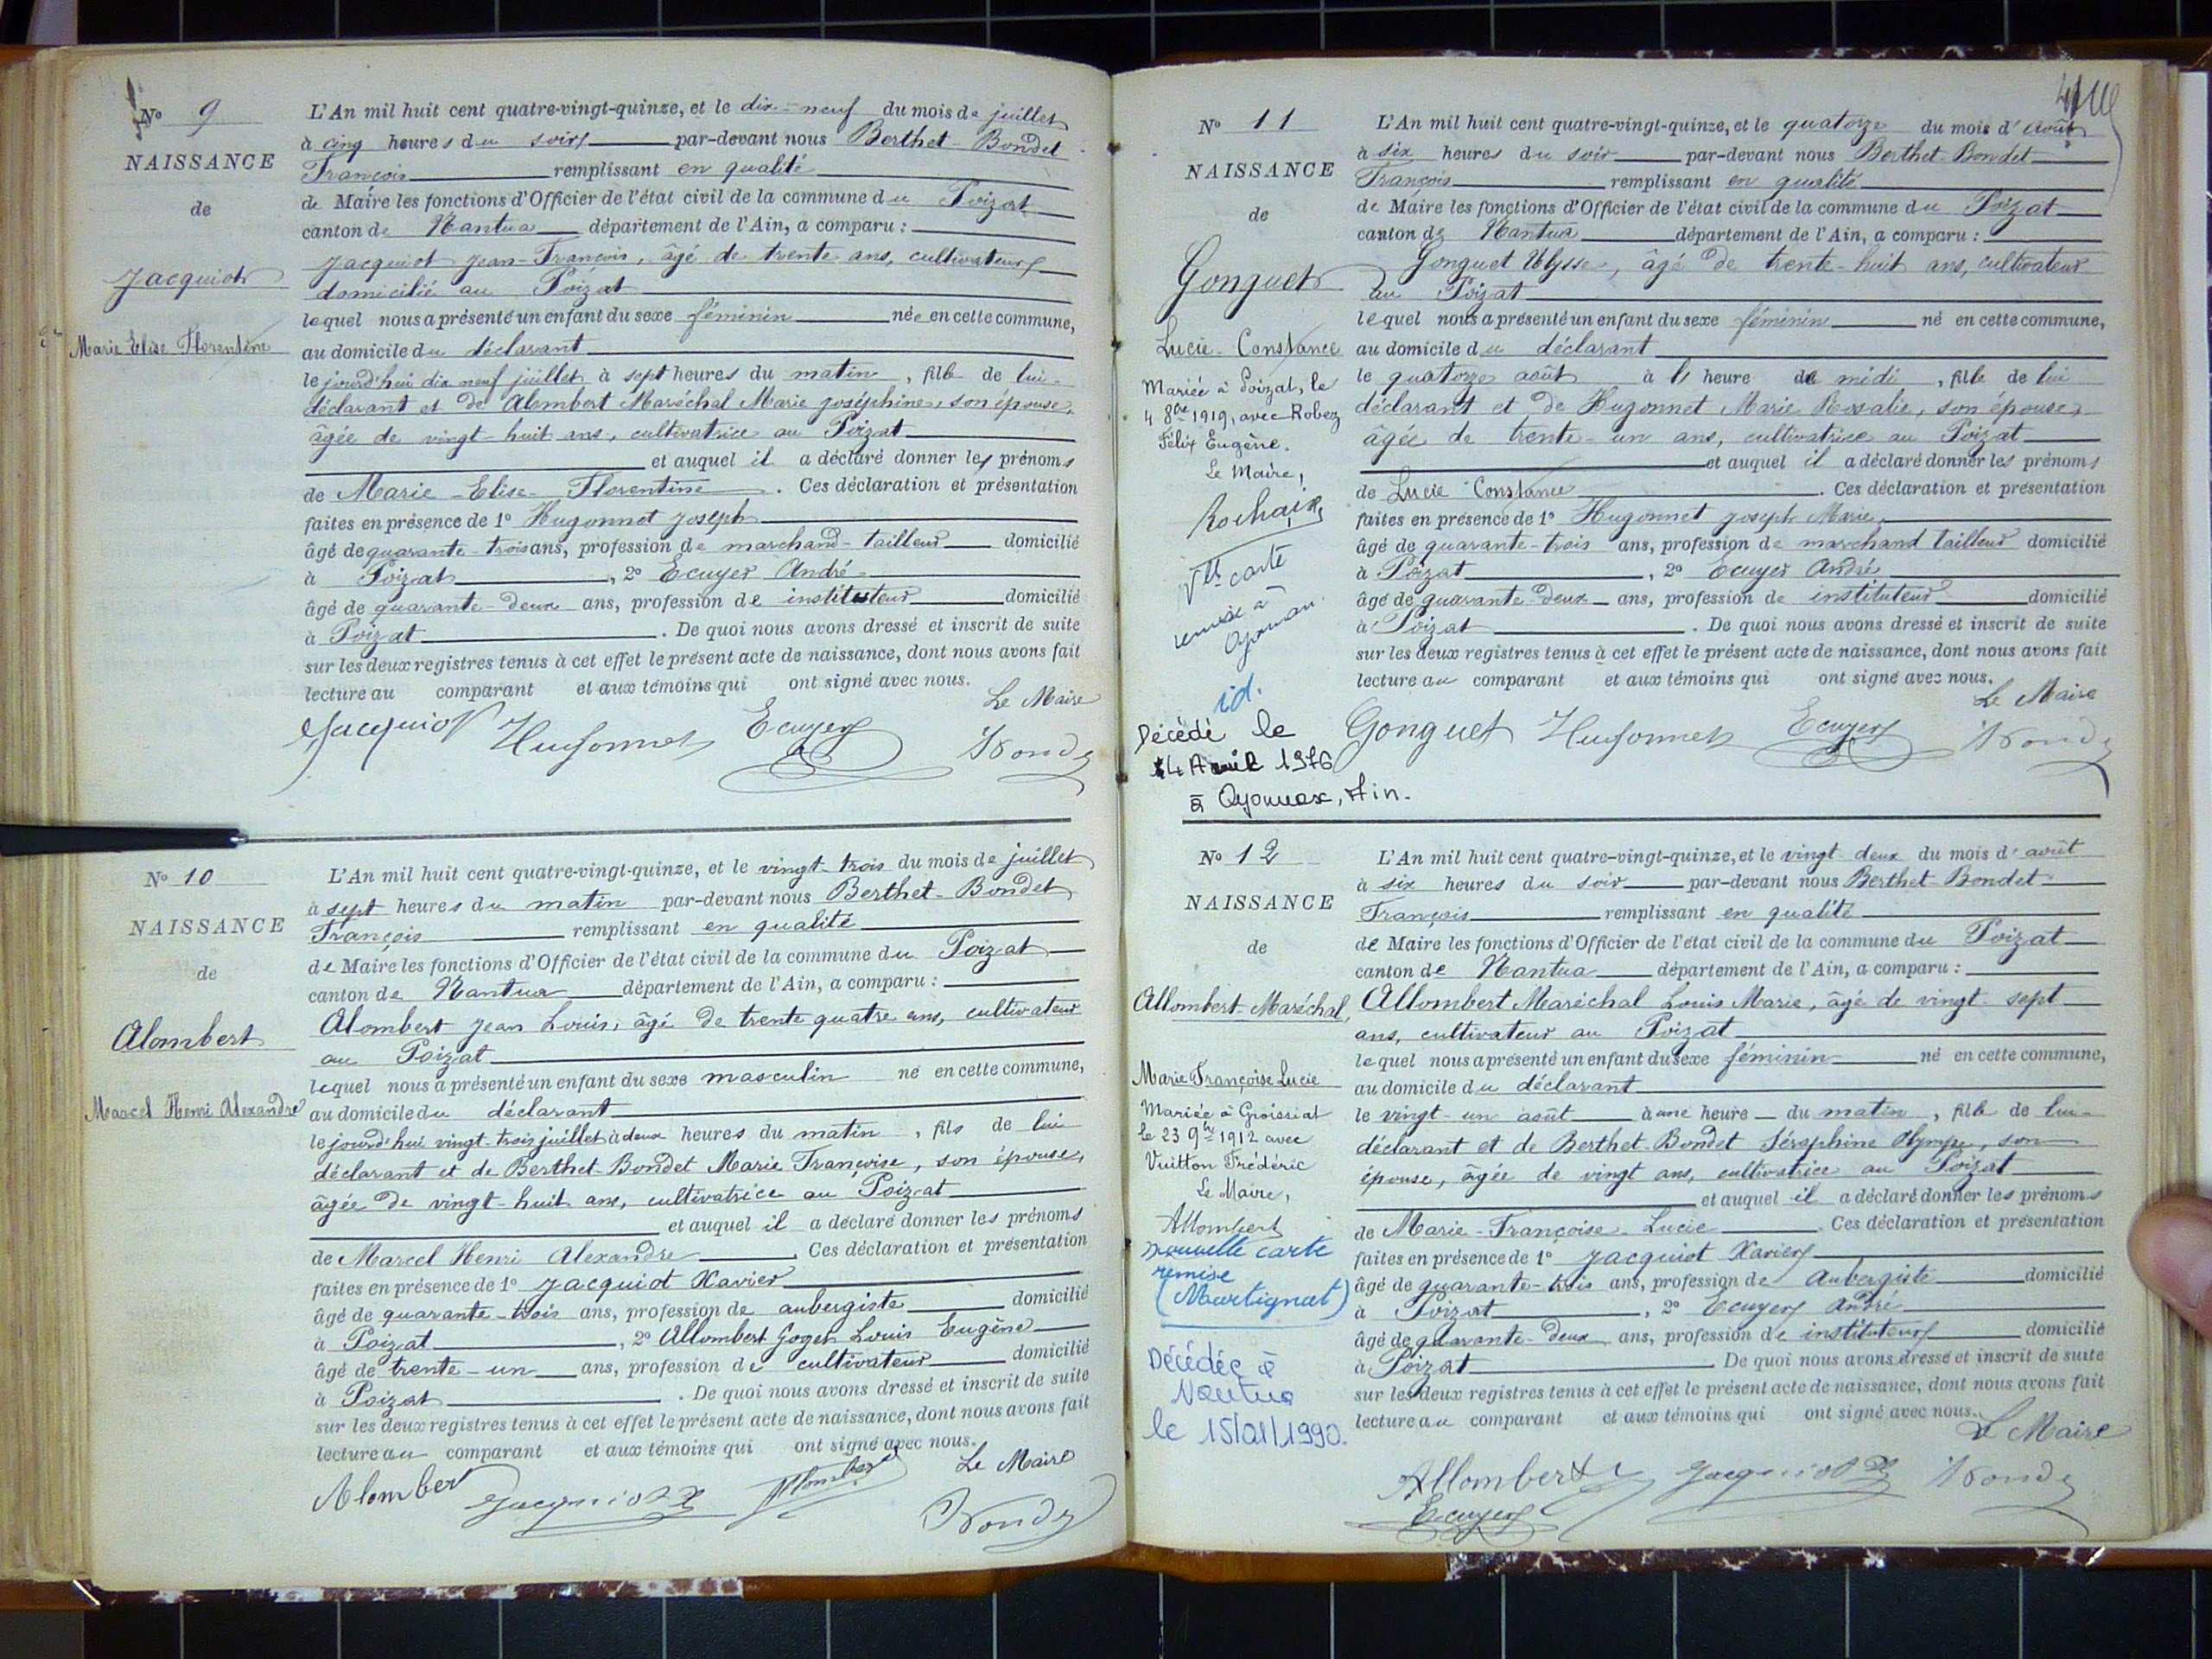 No 9
NAISSANCE
de
Jacquiot
Marie Elise Florentine
L'An mil huit cent quatre-vingt-quinze, et le dix-neuf du mois de juillet
à cinq heures du soir par-devant nous Berthet-Bondet
François remplissant en qualité
de Maire les fonctions d'Officier de l'état civil de la commune du Poizat
canton de Nantua département de l'Ain, a comparu :
Jacquiot Jean-François, âgé de trente ans, cultivateur
domicilié au Poizat
lequel nous a présenté un enfant du sexe féminin née en cette commune,
au domicile du déclarant
le jourd'hui dix neuf juillet à sept heures du matin, fille de lui
déclarant et de Alombert Maréchal Marie Joséphine, son épouse,
âgée de vingt-huit ans, cultivatrice au Poizat
et auquel il a déclaré donner les prénoms
de Marie-Elise-Florentine. Ces déclaration et présentation
faites en présence de 1º Hugonnet Joseph
âgé de quarante-trois ans, profession de marchand-tailleur domicilié
à Poizat, 2º Ecuyer André
âgé de quarante-deux ans, profession de instituteur domicilié
à Poizat. De quoi nous avons dressé et inscrit de suite
sur les deux registres tenus à cet effet le présent acte de naissance, dont nous avons fait
lecture au comparant et aux témoins qui ont signé avec nous.
Le Maire
Jacquiot Hugonnet Ecuyer
No 10
NAISSANCE
de
Alombert
Marcel Henri Alexandre
L'An mil huit cent quatre-vingt-quinze, et le vingt-trois du mois de juillet
à sept heures du matin par-devant nous Berthet-Bondet
François remplissant en qualité
de Maire les fonctions d'Officier de l'état civil de la commune du Poizat
canton de Nantua département de l'Ain, a comparu :
Alombert Jean Louis, âgé de trente quatre ans, cultivateur
au Poizat
lequel nous a présenté un enfant du sexe masculin né en cette commune,
au domicile du déclarant
le jourd'hui vingt-trois juillet à deux heures du matin, fils de lui
déclarant et de Berthet-Bondet Marie Françoise, son épouse,
âgée de vingt-huit ans, cultivatrice au Poizat
et auquel il a déclaré donner les prénoms
de Marcel Henri Alexandre. Ces déclaration et présentation
faites en présence de 1º Jacquiot Xavier
âgé de quarante-trois ans, profession de aubergiste domicilié
à Poizat, 2º Allombert Goget Louis Eugène
âgé de trente-un ans, profession de cultivateur domicilié
à Poizat. De quoi nous avons dressé et inscrit de suite
sur les deux registres tenus à cet effet le présent acte de naissance, dont nous avons fait
lecture au comparant et aux témoins qui ont signé avec nous.
Le Maire
Alombert Jacquiot X Allombert
No 11
NAISSANCE
de
Gonguet
Lucie-Constance
Mariée à Poizat, le
4 8bre 1919, avec Robez
Félix Eugène.
Le Maire,
Rochaix
Vlle carte
remise à
Oyonnax
id.
Décédé le
14 Avril 1976
à Oyonnax, Ain.
L'An mil huit cent quatre-vingt-quinze, et le quatorze du mois d'août
à six heures du soir par-devant nous Berthet-Bondet
François remplissant en qualité
de Maire les fonctions d'Officier de l'état civil de la commune du Poizat
canton de Nantua département de l'Ain, a comparu :
Gonguet Ulysse, âgé de trente-huit ans, cultivateur
au Poizat
lequel nous a présenté un enfant du sexe féminin né en cette commune,
au domicile du déclarant
le quatorze août à heure de midi, fille de lui
déclarant et de Hugonnet Marie Rosalie, son épouse,
âgée de trente-un ans, cultivatrice au Poizat
et auquel il a déclaré donner les prénoms
de Lucie Constance. Ces déclaration et présentation
faites en présence de 1º Hugonnet Joseph Marie
âgé de quarante-trois ans, profession de marchand tailleur domicilié
à Poizat, 2º Ecuyer André
âgé de quarante-deux ans, profession de instituteur domicilié
à Poizat. De quoi nous avons dressé et inscrit de suite
sur les deux registres tenus à cet effet le présent acte de naissance, dont nous avons fait
lecture au comparant et aux témoins qui ont signé avec nous.
Le Maire
Gonguet Hugonnet Ecuyer
No 12
NAISSANCE
de
Allombert-Maréchal,
Marie Françoise Lucie
Mariée à Groissiat
le 23 9bre 1912 avec
Vuitton Frédéric
Le Maire,
Allombert
nouvelle carte
remise
(Martignat)
Décédée à
Nantua
le 15/01/1990.
L'An mil huit cent quatre-vingt-quinze, et le vingt-deux du mois d'août
à six heures du soir par-devant nous Berthet-Bondet
François remplissant en qualité
de Maire les fonctions d'Officier de l'état civil de la commune du Poizat
canton de Nantua département de l'Ain, a comparu :
Allombert Maréchal Louis Marie, âgé de vingt-sept
ans, cultivateur au Poizat
lequel nous a présenté un enfant du sexe féminin né en cette commune,
au domicile du déclarant
le vingt-un août à une heure du matin, fille de lui
déclarant et de Berthet-Bondet Séraphine Olympe, son
épouse, âgée de vingt ans, cultivatrice au Poizat
et auquel il a déclaré donner les prénoms
de Marie-Françoise-Lucie. Ces déclaration et présentation
faites en présence de 1º Jacquiot Xavier
âgé de quarante-trois ans, profession de Aubergiste domicilié
à Poizat, 2º Ecuyer André
âgé de quarante-deux ans, profession de instituteur domicilié
à Poizat. De quoi nous avons dressé et inscrit de suite
sur les deux registres tenus à cet effet le présent acte de naissance, dont nous avons fait
lecture au comparant et aux témoins qui ont signé avec nous.
Le Maire
Allombert Jacquiot X
Ecuyer